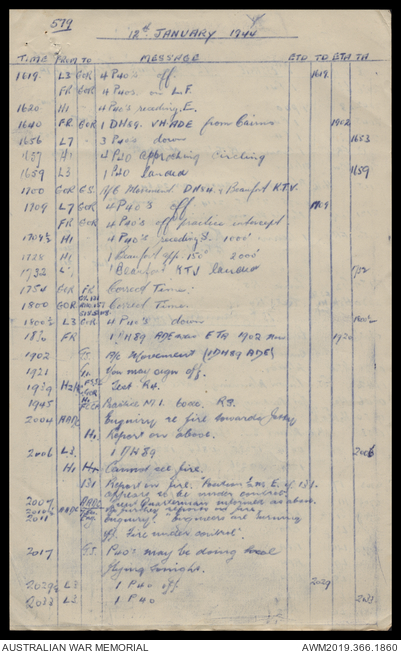 579
12th JANUARY 1944
TIME FROM TO MESSAGE ETD TD ETA TA
1619 L3 GOR 4 P40's off. 1619
FR GOR 4 P40s on L.F.
1620 H1 4 P40's E.
1640 FR GOR 1 DH89. VHADE from Cairns 1902
1656 L7 - 3 P40s down 1653
H1 4 P40 approaching circling
1659 L3 1 P40 landed 1659
1700 GOR G.S. A/C Movement DH89 & Beaufort KTV.
1709 L7 GOR 4 P40's off 1709
FR GOR 4 P40's off practice intercept
1709½ H1 4 P40's S. 1000'
1728 H1 1 Beaufort app. 150° 2000'
1732 L 1 Beaufort KTV landed 1732
1754 GOR FR Correct Time.
1800 GOR Correct Time
1800½ L3 GOR 4 P40's down 1800½
FR 1 DH89 ADE ETA 1902
1902 G.S. A/C Movement (1 DH89 ADE)
1921 You may sign off.
1939 Test R4.
1945 R3.
2004 Enquiry re fire towards
H1 Report on above.
2006 L3 1 DH89 2006
H1 Cannot see fire.
131 Report on fire. E of 131.
appears to be under control.
2007 informed as above.
no fire
2011 Enquiry. "Engineers are
off. Fire under control".
2017 G.S. P40's may be doing local
flying tonight.
2029½ L3 1 P40 off 2029
2033 L3 1 P40 2033
AUSTRALIAN WAR MEMORIAL AWM2019.366.1860